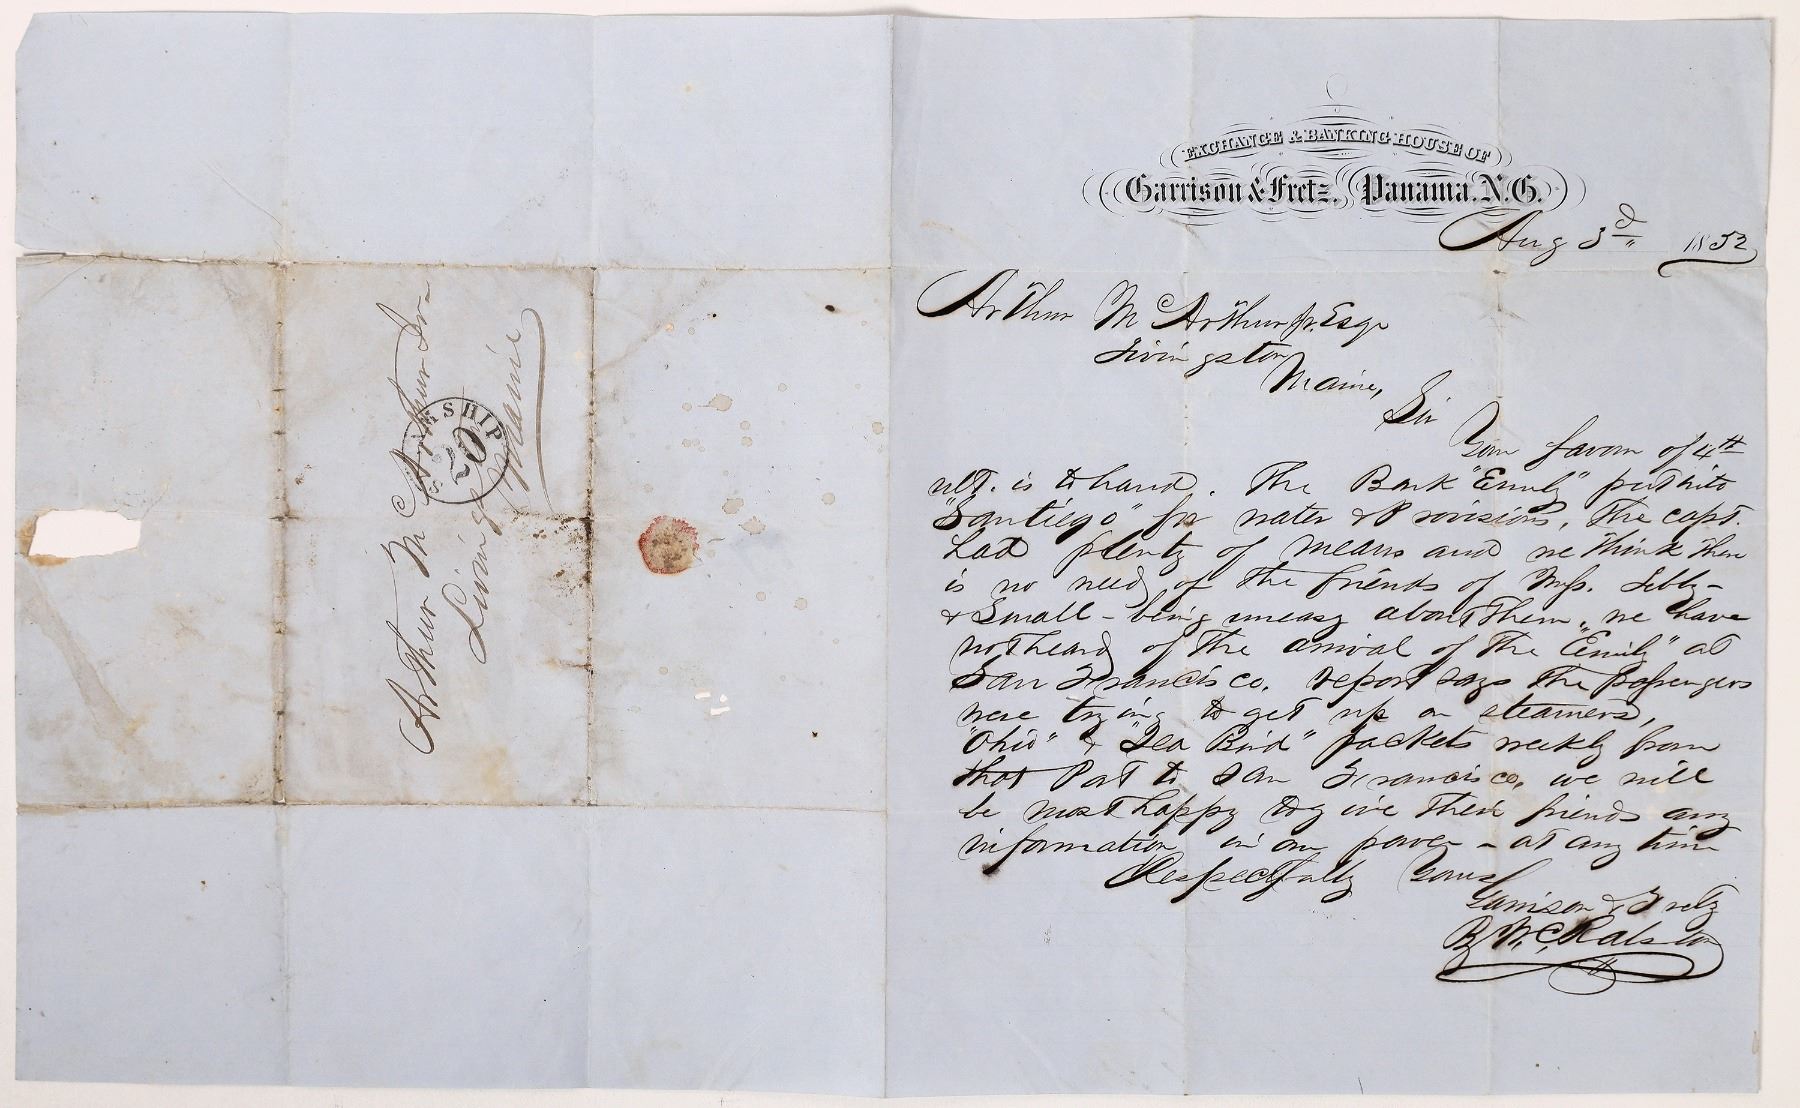 EXCHANGE & BANKING HOUSE OF
Garrison & Fretz, Panama. N. G.
Aug 3d 1852
Arthur McArthur Jr. Esqr
Livingston
Maine,
Sir
Your favour of 4th
ult. is to hand. The Bark "Emily" put into
"Santiego" for water & Provisions, The capt.
had plenty of means and we think there
is no need of the friends of Messrs. Libby
& Small - being uneasy about them, we have
not heard of the arrival of the "Emily" at
San Francisco. report says the passengers
were trying to get up on steamers,
"Ohio" & "Sea Bird" packets weekly from
that Port to San Francisco, we will
be most happy to give their friends any
information in our power - at any time
Respectfully Yours
Garrison & Fretz
By W. C. Ralston
Arthur McArthur Jr.
Livingston
Maine
STEAMSHIP
20